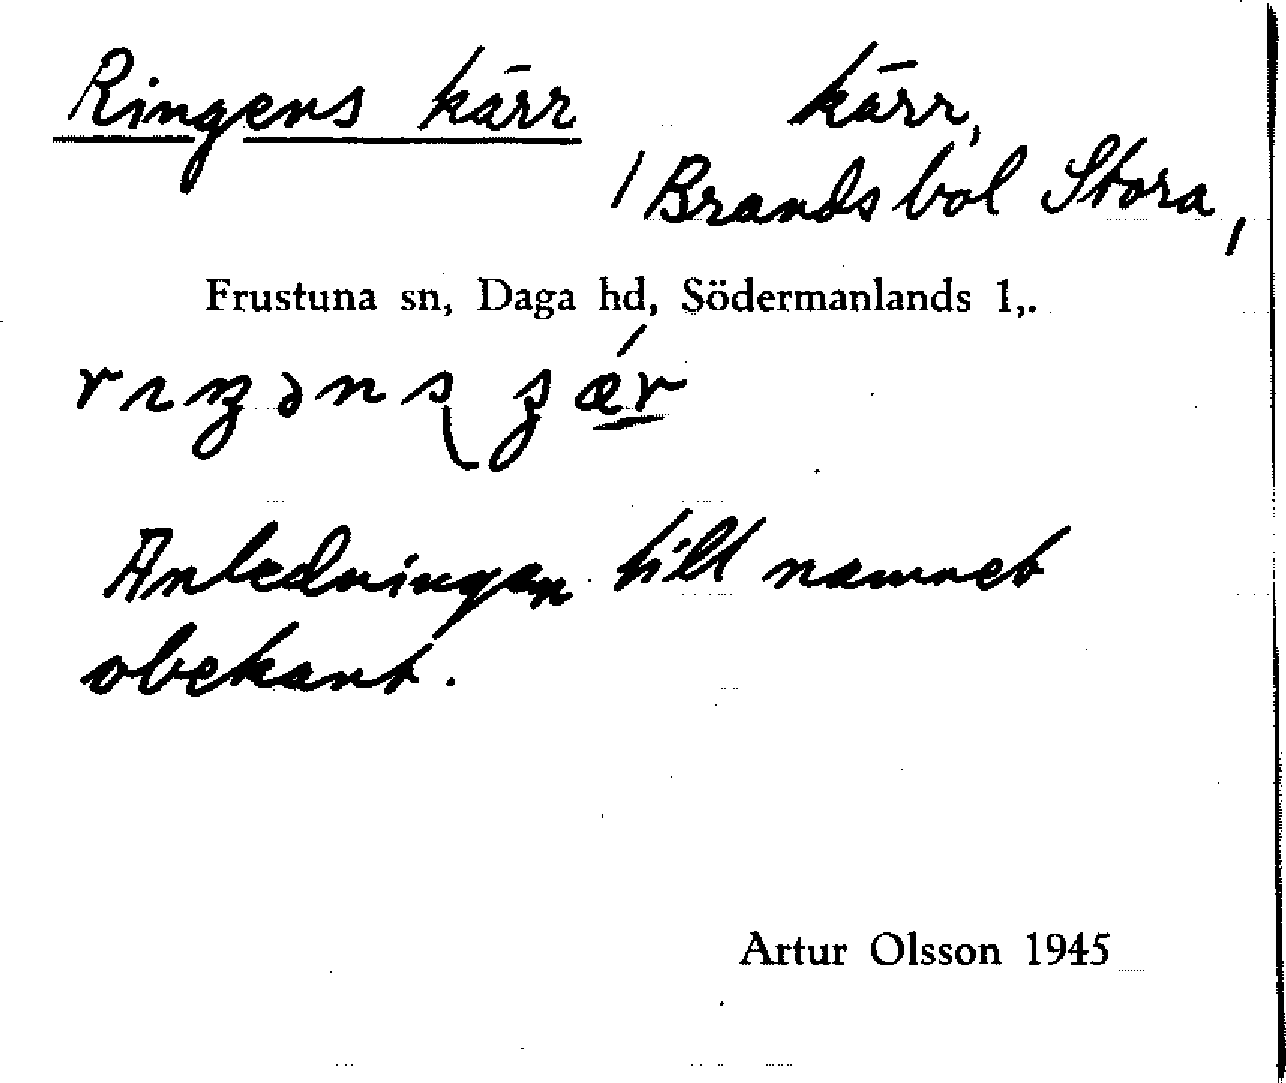 Ringens kärr kärr,
/ Brandsbol Stora,
Frustuna sn, Daga hd, Södermanlands l,.
Anledningen till namnet
obekant.
Artur Olsson 1945